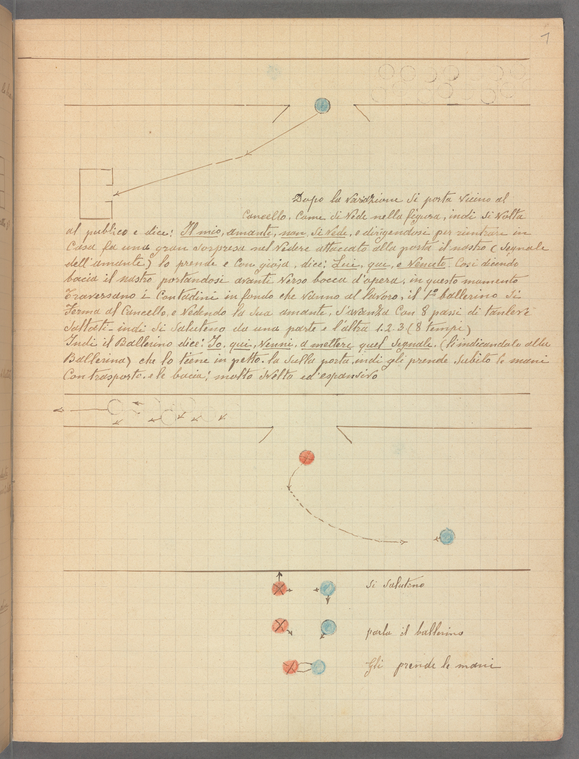 1
Dopo la variazione si porta vicino al
Cancello. Come si vede nella figura, indi si volta
al publico e dice: Il mio, amante, non, si vede, e dirigendosi per rientrare in
Casa fa una gran sorpresa nel vedere attaccato alla porta il nastro (segnale
dell'amante) lo prende e con gioja, dice: Lui, qui, e venuto. Così dicendo
bacia il nastro portandosi avante verso bocca d'opera, in questo momento
traversano i Contadini in fondo che vanno al lavoro, il 1º ballerino si
ferma al Cancello, e vedendo la sua amante, s'avanza con 8 passi di
indi si salutono da una parte e l'altra 1.2.3 (8 tempi)
Indi il Ballerino dice: Io, qui, venni, a mettere, quel segnale. (l'indicandolo alla
Ballerina) che lo tiene in petto. la sulla porta, indi gli prende subito le mani
con trasporto, e le bacia; molto svelta ed espansivo
si salutono
parla il ballerino
Gli prende le mani